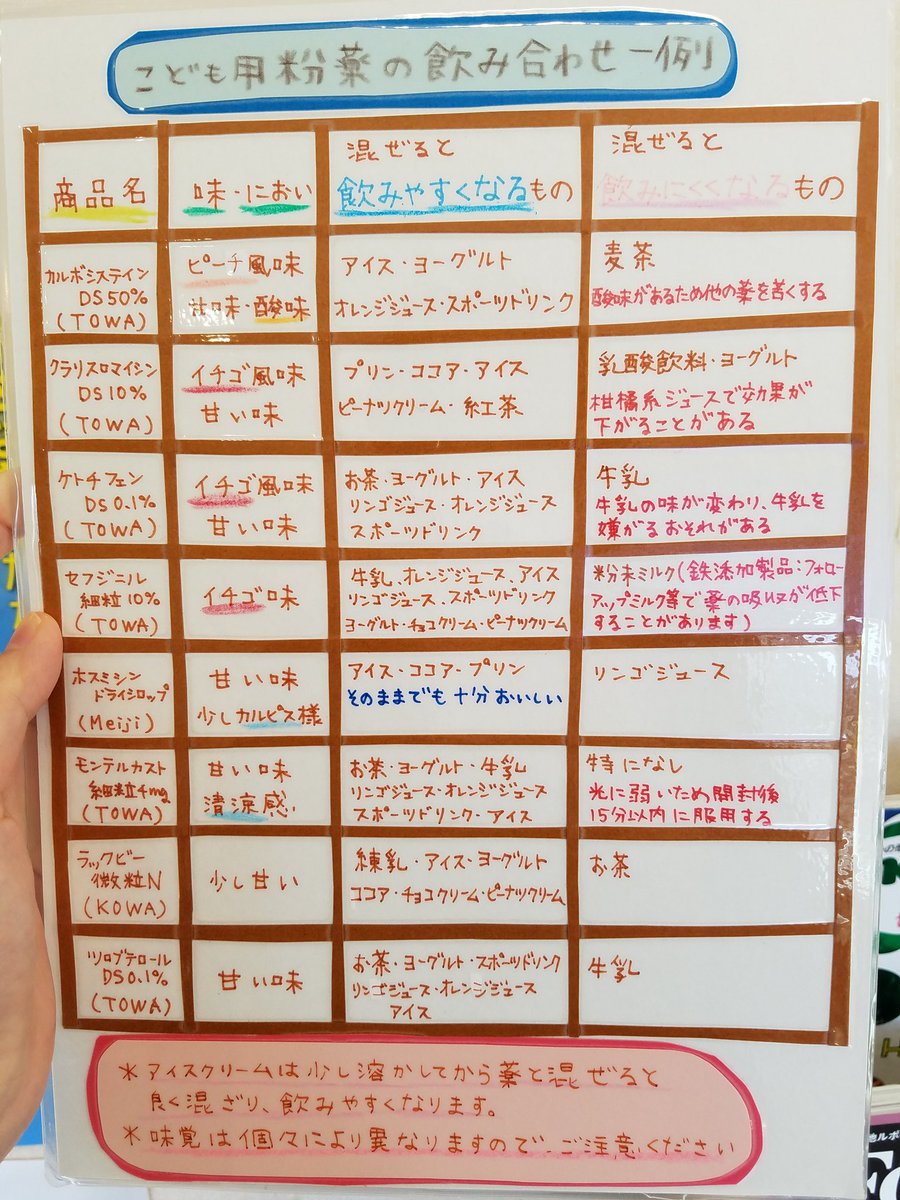 こども用粉薬の飲み合わせ一例
商品名
味・におい
混ぜると
飲みやすくなるもの
混ぜると
飲みにくくなるもの
カルボシステイン
DS50%
(TOWA)
ピーチ風味
甘味・酸味
アイス・ヨーグルト
オレンジジュース・スポーツドリンク
麦茶
酸味があるため他の薬を苦くする
クラリスロマイシン
DS10%
(TOWA)
イチゴ風味
甘い味
プリン・ココア・アイス
ピーナツクリーム・紅茶
乳酸飲料・ヨーグルト
柑橘系ジュースで効果が
下がることがある
ケトチフェン
DS0.1%
(TOWA)
イチゴ風味
甘い味
お茶・ヨーグルト・アイス
リンゴジュース・オレンジジュース
スポーツドリンク
牛乳
牛乳の味が変わり、牛乳を
嫌がるおそれがある
セフジニル
細粒10%
(TOWA)
イチゴ味
牛乳、オレンジジュース、アイス
リンゴジュース、スポーツドリンク
ヨーグルト・チョコクリーム・ピーナツクリーム
粉末ミルク(鉄添加製品:フォロー
アップミルク等で薬の吸収が低下
することがあります)
ホスミシン
ドライシロップ
(Meiji)
甘い味
少しカルピス様
アイス・ココア・プリン
そのままでも十分おいしい
リンゴジュース
モンテルカスト
細粒4mg
(TOWA)
甘い味
清涼感
お茶・ヨーグルト・牛乳
リンゴジュース・オレンジジュース
スポーツドリンク・アイス
特になし
光に弱いため開封後
15分以内に服用する
ラックビー
微粒N
(KOWA)
少し甘い
練乳・アイス・ヨーグルト
ココア・チョコクリーム・ピーナツクリーム
お茶
ツロブテロール
DS0.1%
(TOWA)
甘い味
お茶・ヨーグルト・スポーツドリンク
リンゴジュース・オレンジジュース
アイス
牛乳
*アイスクリームは少し溶かしてから薬と混ぜると
良く混ざり、飲みやすくなります。
*味覚は個々により異なりますので、ご注意ください